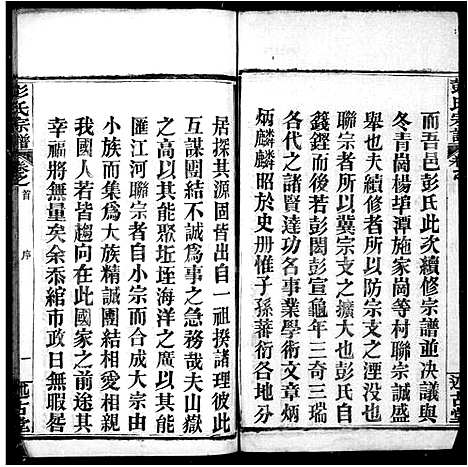 而吾邑彭氏此次續修宗譜並决議與
冬青崗楊埠潭施家崗等村聯宗誠盛
舉也夫續修者所以防宗支之湮没而
聯宗者所以冀宗支之擴大也彭氏自
籛鏗而後若彭閎彭宣龜年三奇三瑞
各代之賢達名人事業學術文章彪
炳麟麟昭於史册惟子孫蕃衍各
居探其源固皆出自一祖揆諸理彼此
互謀團結不誠爲事之急務哉夫山嶽
之高以其能聚坵垤海洋之廣以其能
匯江河聯宗者自小宗而合成大宗由
小族而集爲大族精誠團結相愛相親
我國人若皆趨向在此國家之前途其
幸福將無量矣余忝綰市政日無暇晷
彭氏宗譜
卷之首
序
一
述古堂
彭氏宗譜
述古堂